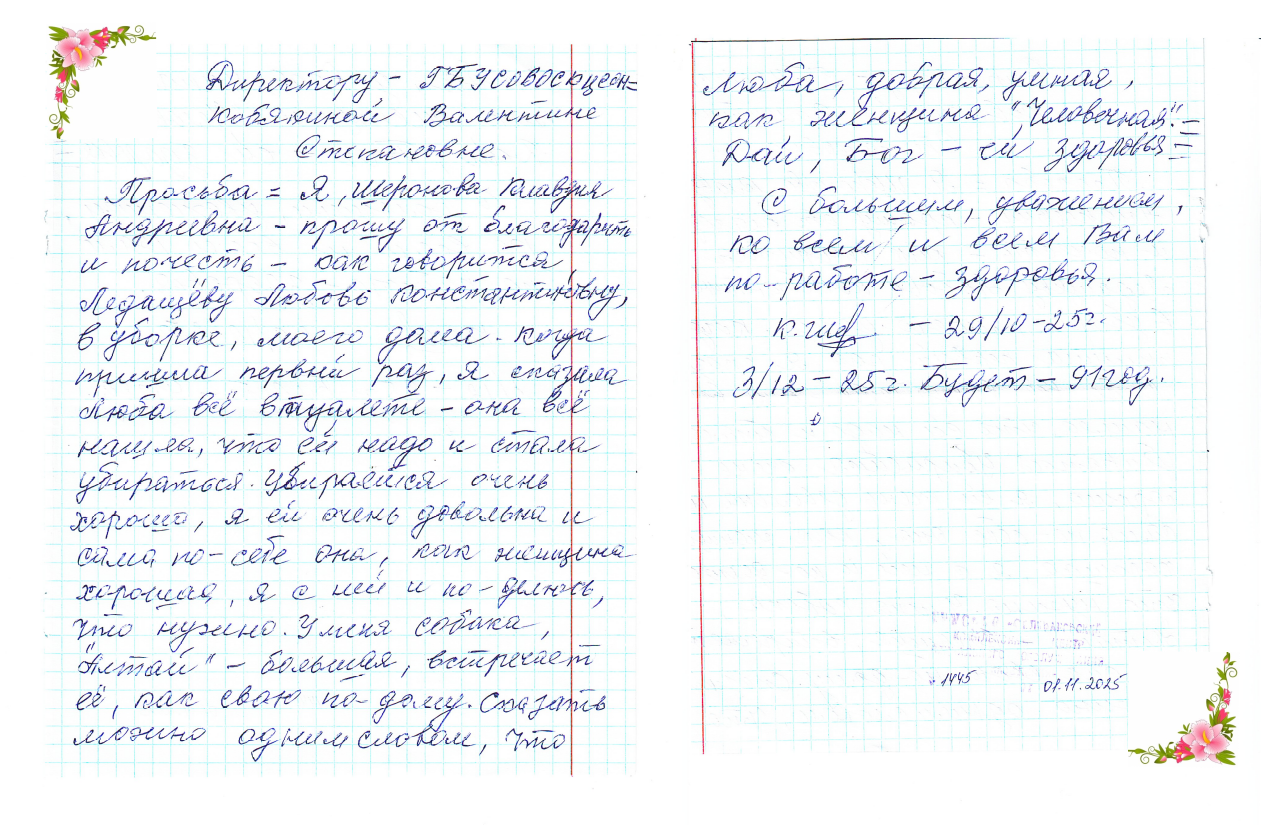 Директору - ГБУСОВОСКЦСОН=
Кобякиной Валентине
Степановне.
Просьба = Я, Шеронова Клавдия
Андреевна - прошу от благодарить
и почесть - как говорится,
Ледащёву Любовь Константиновну,
в уборке, моего дома. Когда
пришла первый раз, я сказала
Люба всё в туалете - она всё
нашла, что ей надо и стала
убираться. Убирается очень
хорошо, я ей очень довольна и
сама по-себе она, как женщина
хорошая, я с ней и по-делюсь,
что нужно. У меня собака,
"Алтай" - большая, встречает
её, как сваю по-дому. Сказать
можно одним словом, что
Люба, добрая, умная,
как, женщина "Человечная".=
Дай, Бог - ей здоровья=
С большим, уважением,
ко всем! и всем Вам
по-работе - здоровья.
К.Шер - 29/10-25г.
3/12 - 25 г. Будет - 91 год.
1445
01.11.2025